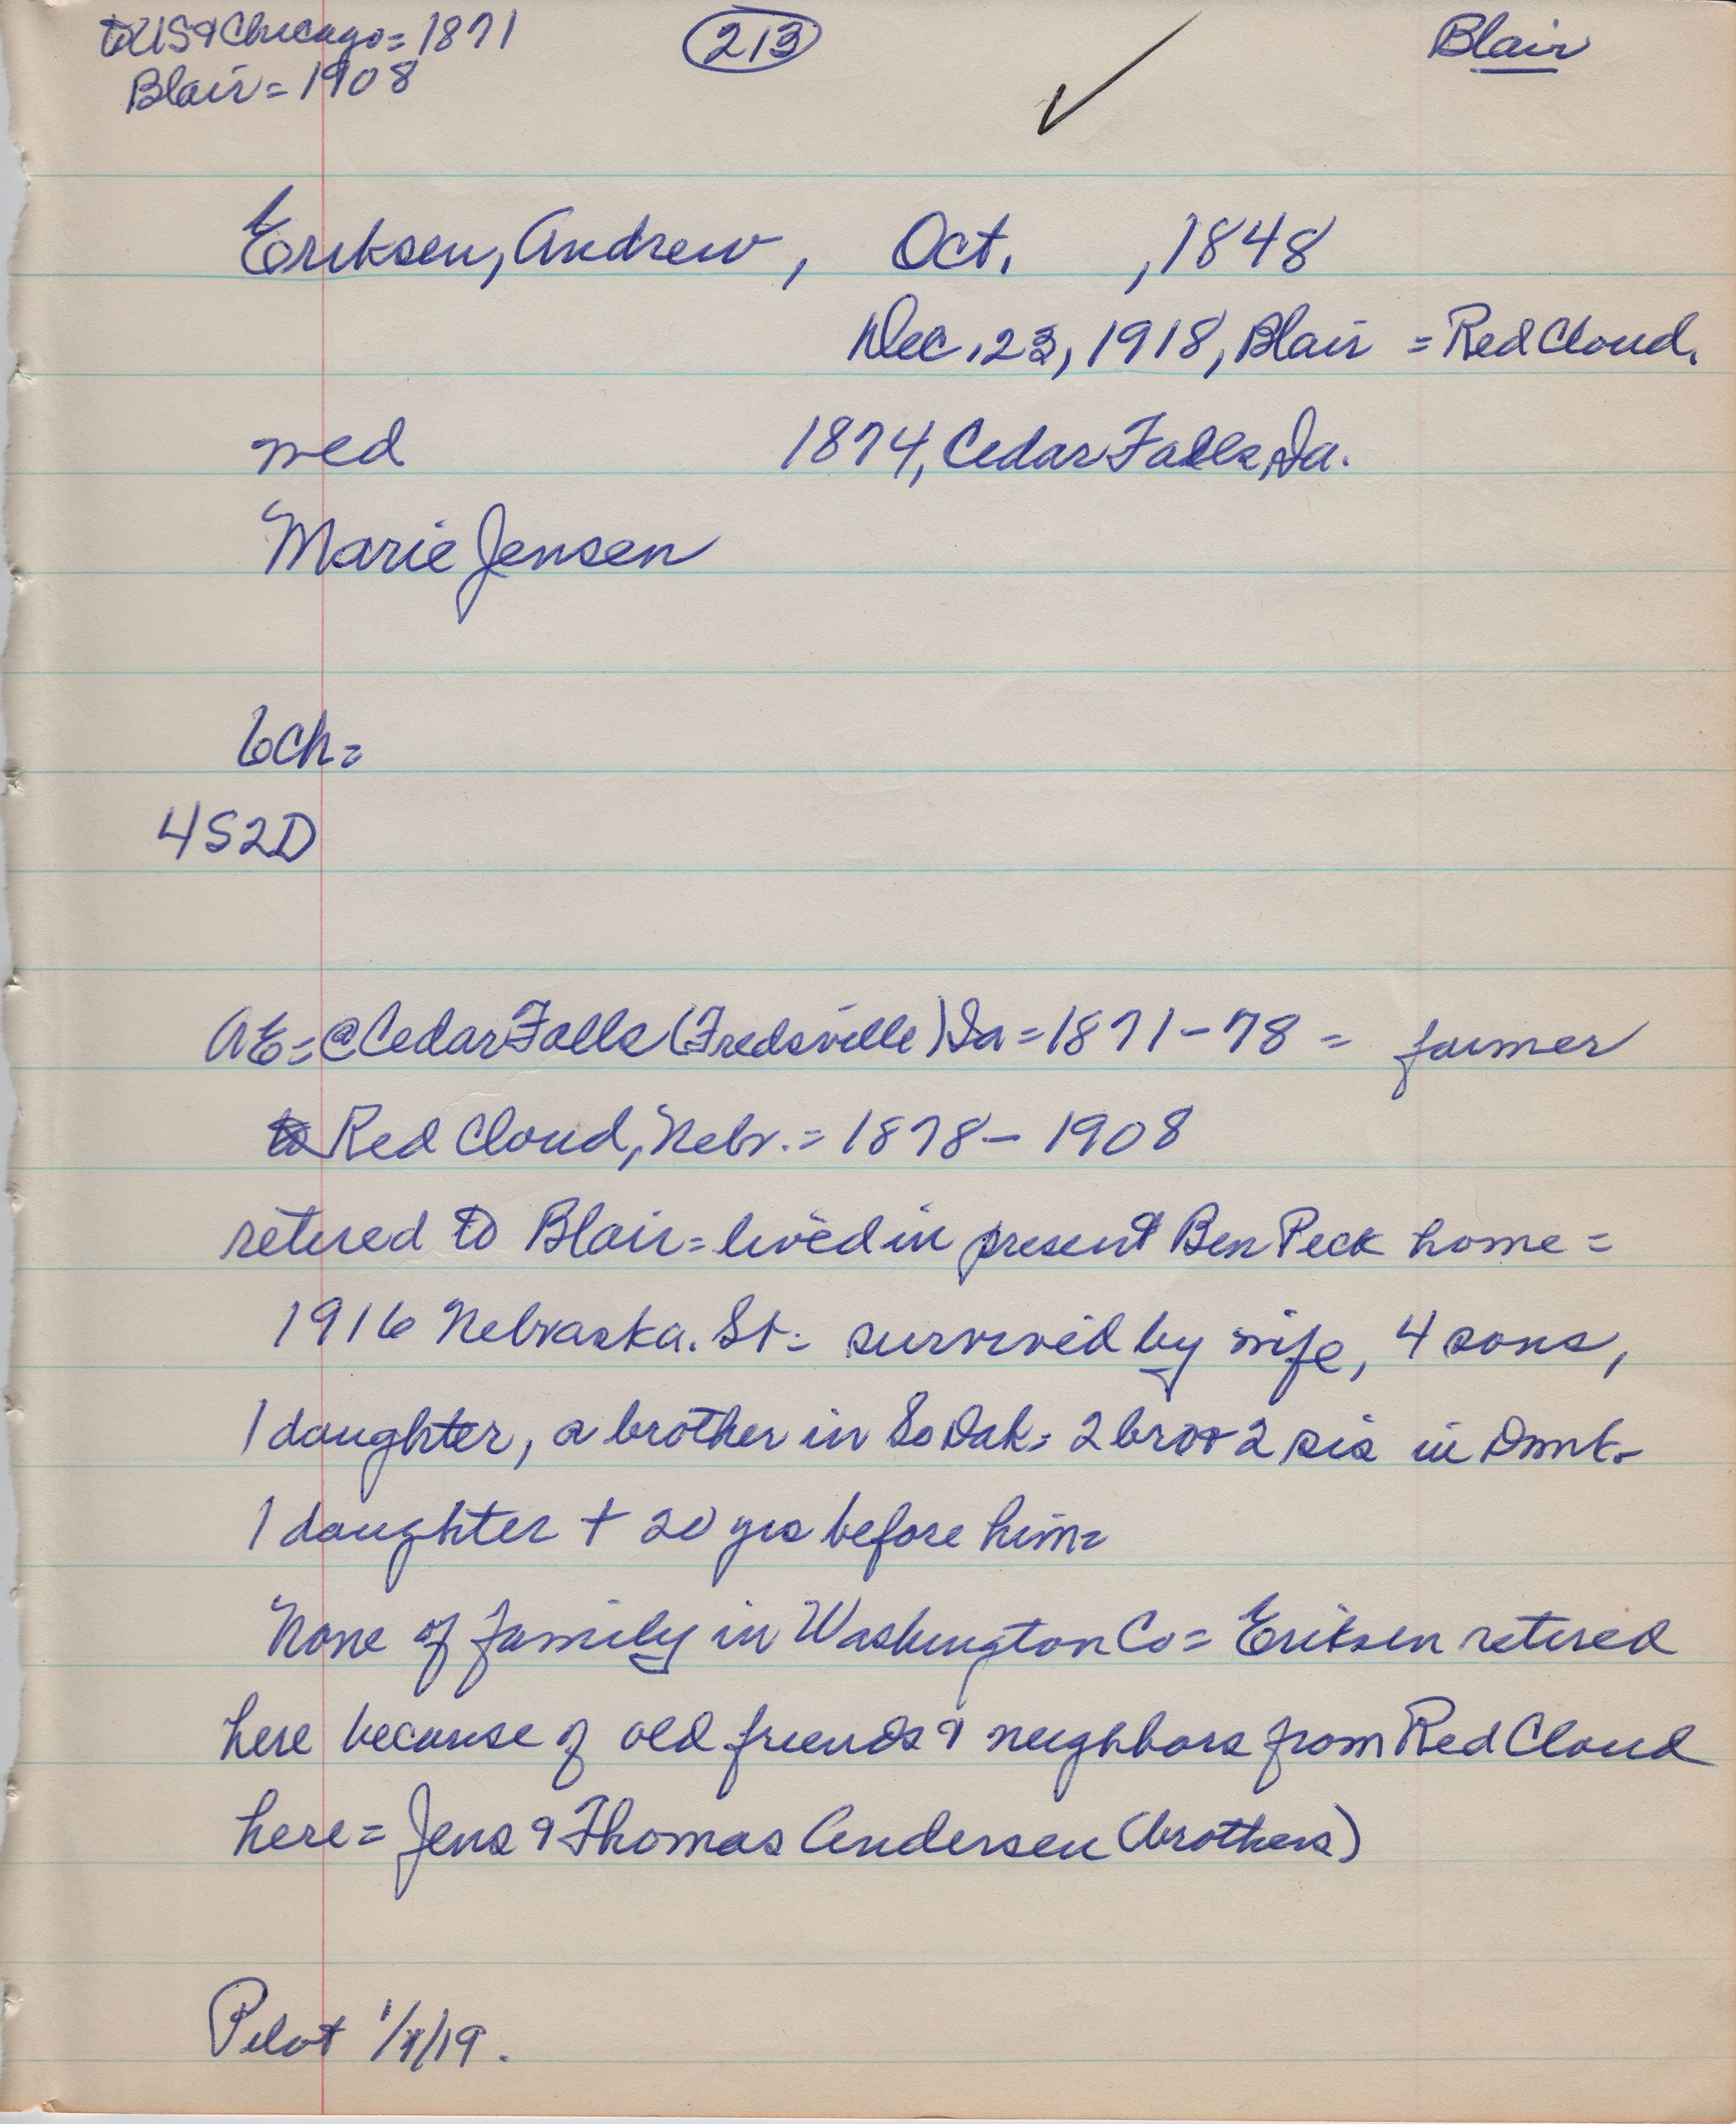 to US & Chicago = 1871
Blair = 1908
213
Blair
Eriksen, Andrew, Oct. , 1848
Dec. 23, 1918, Blair = Red Cloud.
wed 1874, Cedar Falls, Ia.
Marie Jensen
6ch=
4S2D
AE= @ Cedar Falls (Fredsville) Ia = 1871-78 = farmer
to Red Cloud, Nebr. = 1878-1908
retired to Blair = lived in present Ben Peck home =
1916 Nebraska. St = survived by wife, 4 sons,
1 daughter, a brother in So Dak = 2 bro & 2 sis in Dmk-
1 daughter + 20 yrs before him=
None of family in Washington Co = Eriksen retired
here because of old friends & neighbors from Red Cloud
here = Jens & Thomas Andersen (brothers)
Pilot 1/1/19.